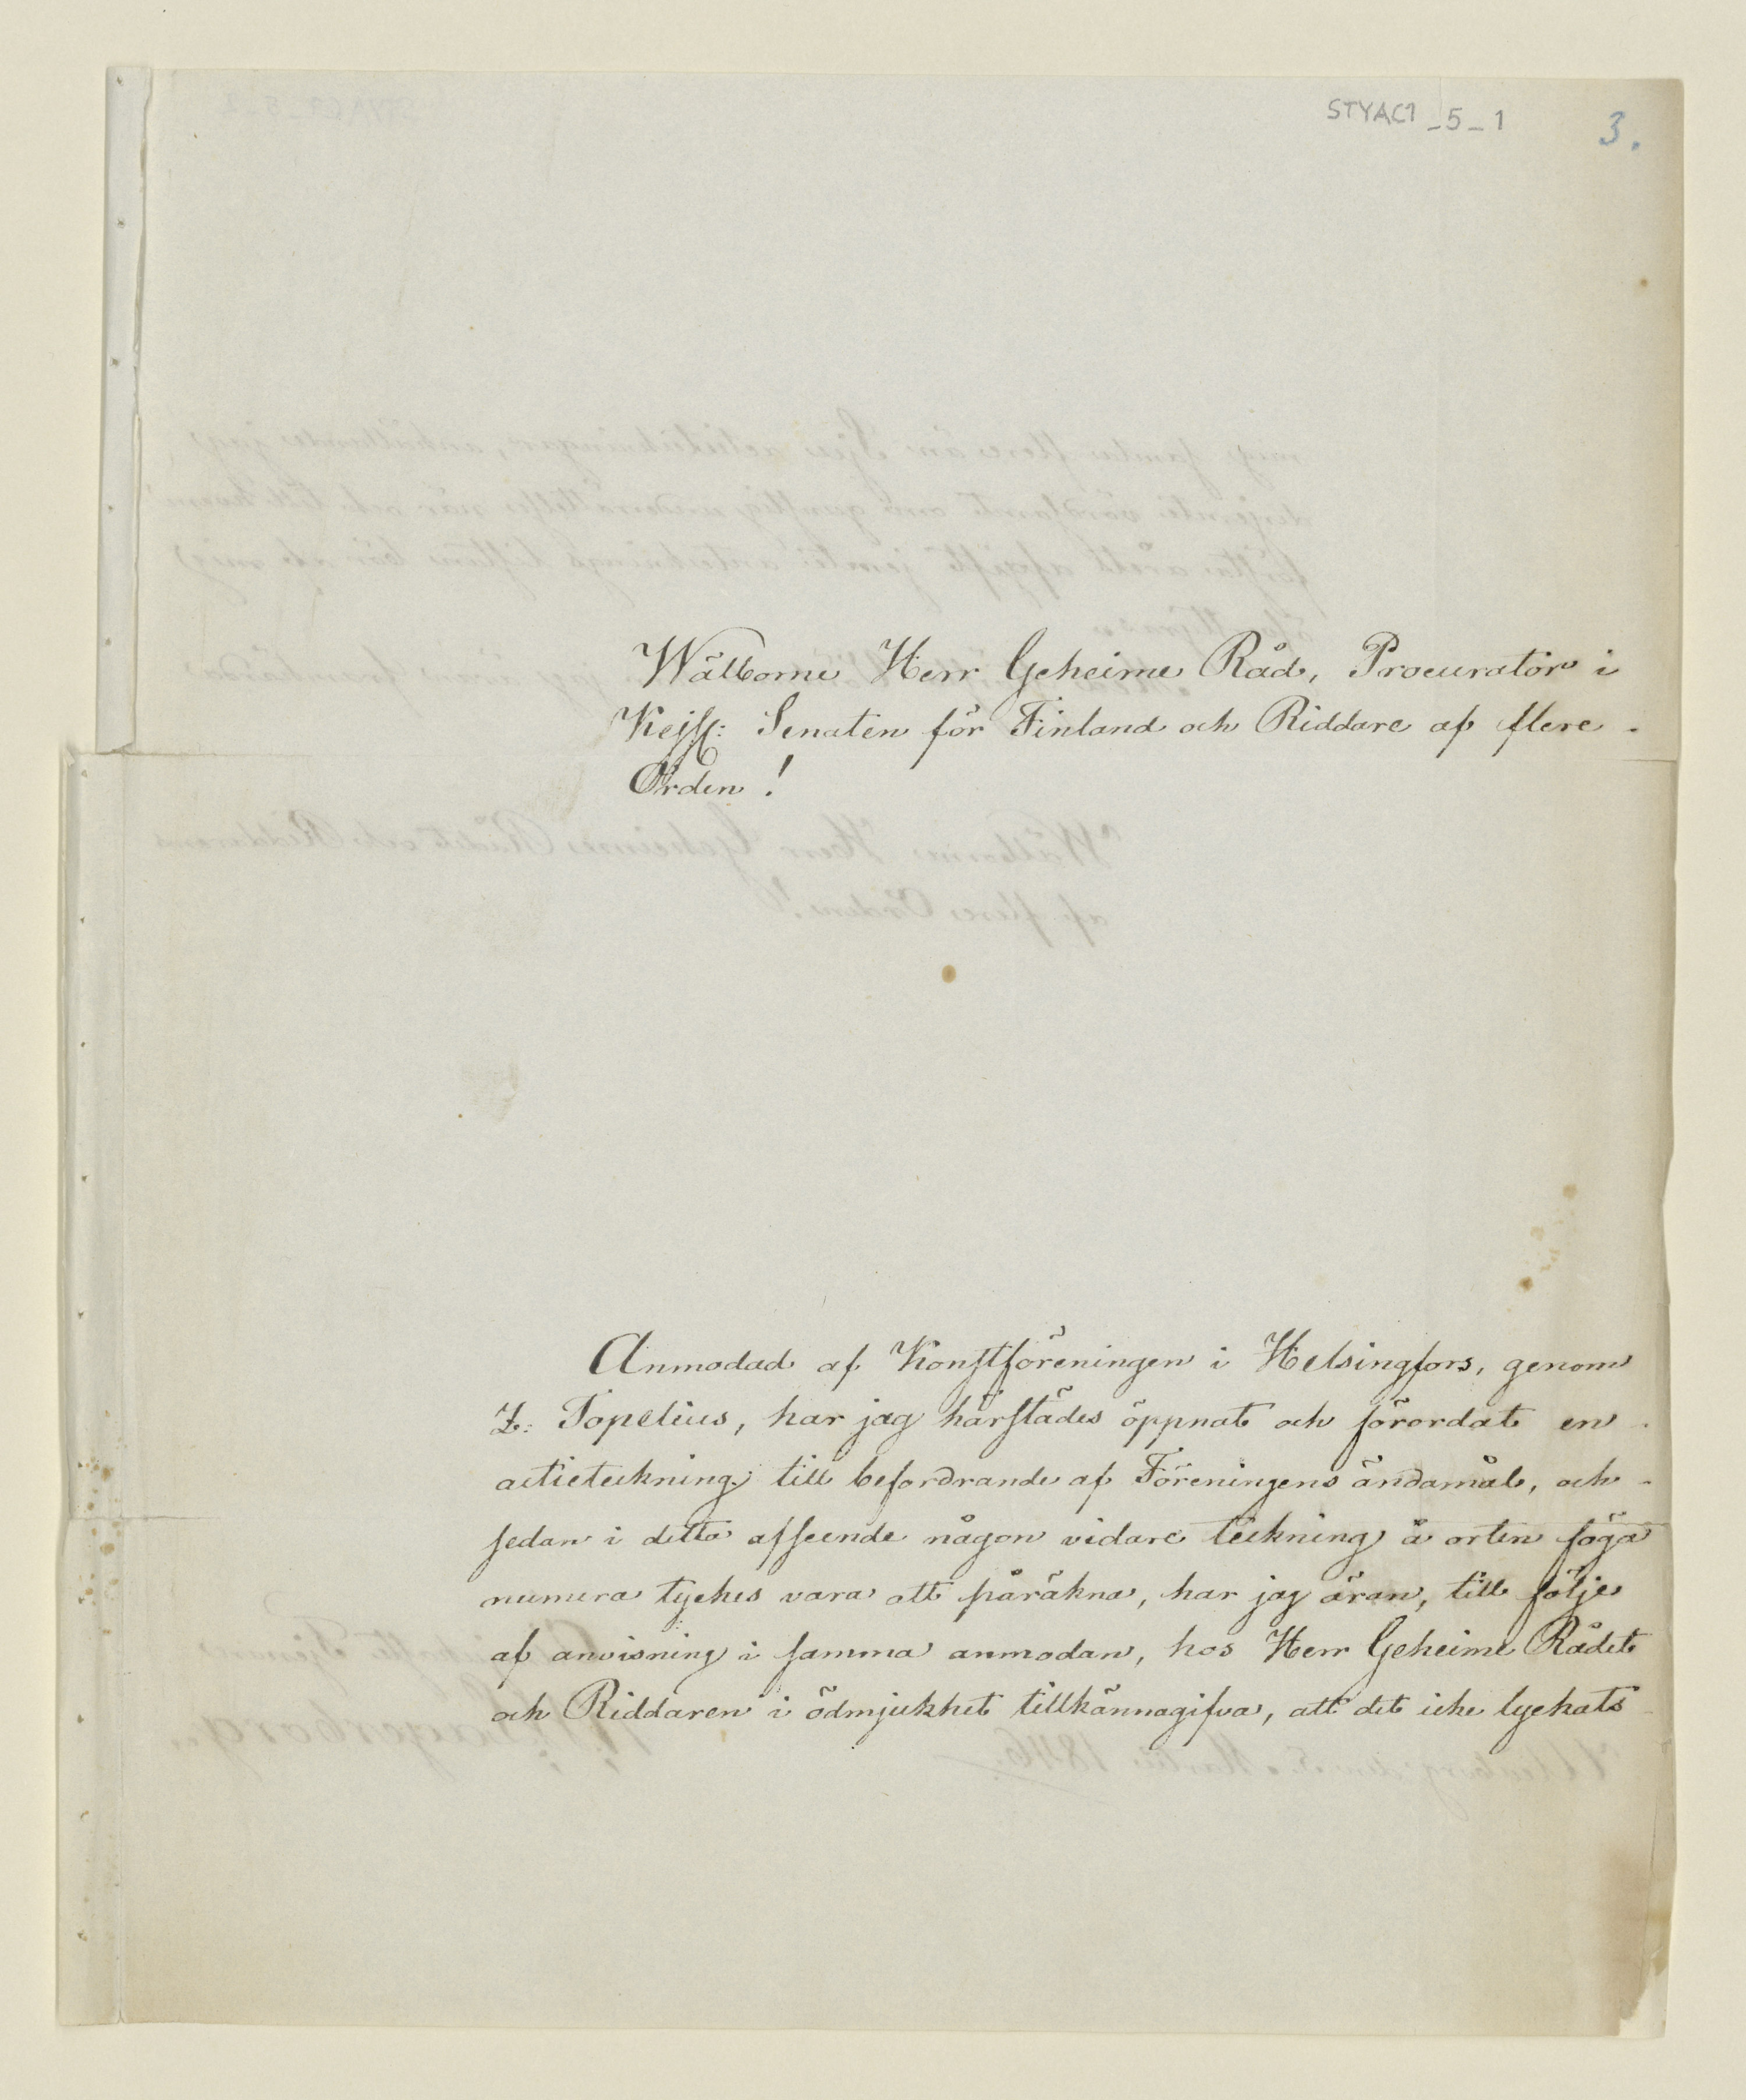 STYAC1_5_1
3.
Wälborne Herr Geheime Råd, Procurator i
Kejs: Senaten för Finland och Riddare af flere
Orden!
Anmodad af Konstföreningen i Helsingfors, genom
Z: Topelius, har jag härstädes öppnat och förordat en
actieteckning till befordrande af Föreningens ändamål, och
sedan i detta afseende någon vidare teckning å orten föga
numera tyckes vara att påräkna, har jag äran, till följe
af anvisning i samma anmodan, hos Herr Geheime Rådet
och Riddaren i ödmjukhet tillkännagifva, att det icke lyckats